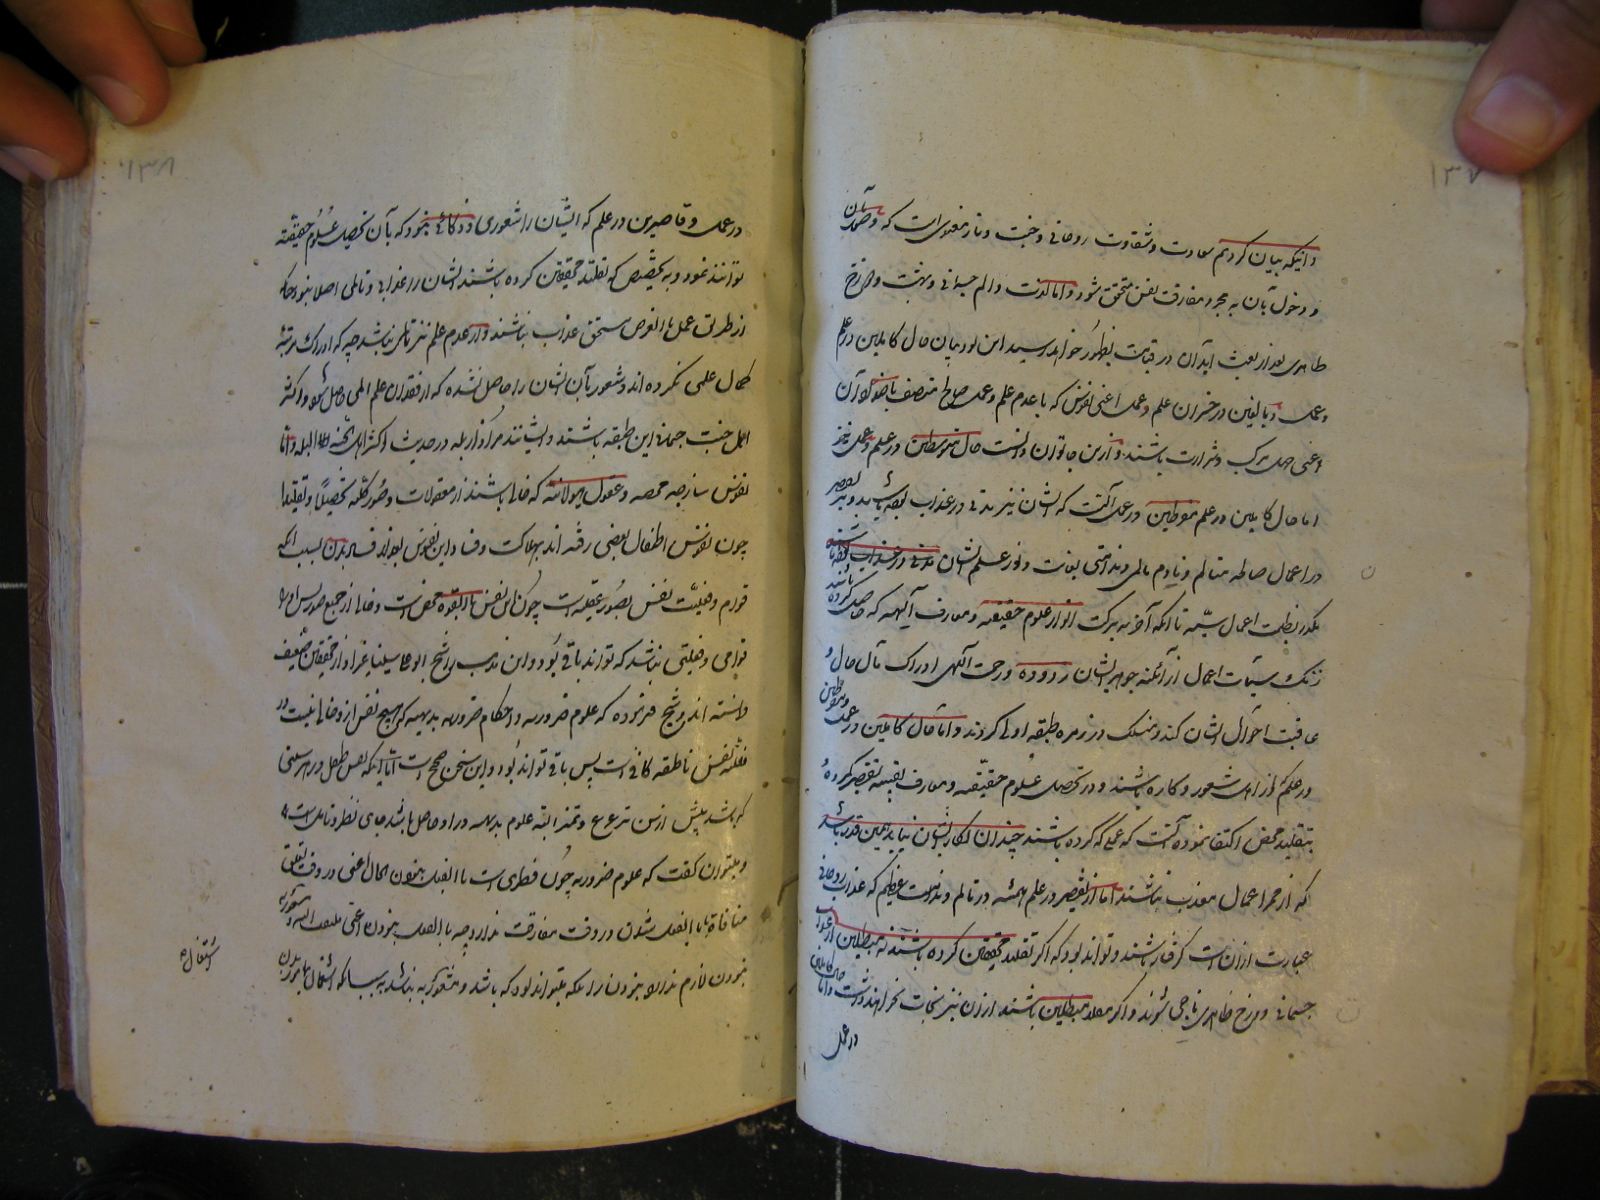 ۱۳۷
و اینکه بیان کردیم سعادت و شقاوت روحانی و جنت و نار معنوی است که وصول آن
و دخول بآن به مجرد مفارقت نفس متحقق شود و اما لذت و الم جسمانی و بهشت و دوزخ
ظاهری بعد از بعث ابدان در قیامت بظهور خواهد رسید این بود بیان حال کاملین در علم
و عمل و بالغین در خسران علم و عمل اعنی نفوس که با عدم علم و عمل صالح متصف باضداد آن
اعنی جهل مرکب و شرارت باشند و ازین جا توان دانست حال متوسطین در علم و عمل نیز
اما حال کاملین در علم مفرطین در عمل آنست که ایشان نیز مدتی در عذاب
در اعمال صالحه متألم و نادم مالی و ندامتی بغایت و نور علم ایشان مدتی در
مکدر بظلمت اعمال سیئه تا آنکه آخر به برکت انوار علوم حقیقیه و معارف الهیه که حاصل کرده باشند
زنگ سیئات اعمال از آئنه جوهر ایشان زدوده و رحمت الهی ادراک مآل حال و
عاقبت احوال ایشان کند و منسلک در زمره طبقه اولی گردند و اما حال کاملین در عمل و مفرطین
در علم که از اهل شعور و کاره باشند و در تحصیل علوم حقیقیه و معارف یقینیه تقصیر کرده
بتقلید محض اکتفا نموده آنست که عملی که کرده باشند چندان بکار ایشان نیاید همین قدر باشد
که از ممر اعمال معذب نباشند اما از تقصیر در علم همیشه در تألم و ندامت عظیم که عذاب روحانی
عبارت از آن است گرفتار باشند و تواند بود که اگر تقلید محققین کرده باشند نه مبطلین از عذاب
جسمانی و دوزخ ظاهری ناجی شوند و اگر مقلد مبطلین باشند از آن نیز نجات نخواهند داشت و اما حال کاملین
در عمل
۱۳۸
در عمل و قاصرین در علم که ایشان را شعوری و ذکائی نبود که بآن تحصیل علوم حقیقیه
توانند نمود و به تخصیص که تقلید محققین کرده باشند ایشان را عذابی و تألمی اصلا نبود چه که
از طریق عمل بالفرض مستحق عذاب نباشند و از عدم علم نیز تألمی نباشد چه که ادراک مرتبۀ
کمال علمی نکرده اند و شعور بآن ایشان را حاصل نشده که از فقدان علم المی حاصل شود و اکثر
اهل جنت جسمانی این طبقه باشند و ایشانند مراد از بله در حدیث اکثر اهل الجنه البله و اما
نفوس ساذجه محضه و عقول هیولانیه که خالی باشند از معقولات و صور کلیه تحصیلا و تقلیدا
چون نفوس اطفال بعضی رفته اند بهلاکت و فناء این نفوس بعد از فساد بدن بسبب آنکه
قوام و فعلیت نفس بصور عقلیه است چون این نفس بالقوه محض است و خالی از جمیع صور پس او را
قوامی و فعلیتی نباشد که تواند باقی بود و این مذهب را شیخ ابوعلی سینا و غیر او از محققین ضعیف
دانسته اند و شیخ فرموده که علوم ضروریه و احکام ضروریه بدیهیه که هیچ نفس از و خالی نیست در
فعلیت نفس ناطقه کافی است پس باقی تواند بود و این سخن صحیح است اما اینکه نفس طفل در هر سنی
که باشد پیش از سن ترعرع و تمیز البته علوم بدیهیه در او حاصل باشد جای نظر و تأمل است
و میتوان گفت که علوم ضروریه چون فطری است بالفعل نبودن مآل اعنی در وقت تعلق
منافاة با بالفعل شدن در وقت مفارقت ندارد چه بالفعل نبودن اعنی ملتفت الیه و مشعور به
نبودن لازم ندارد نبودن را بلکه میتواند بود که باشد و مشعور به نباشد بسبب آنکه اشتغال به تدبیر بدن
اشتغال